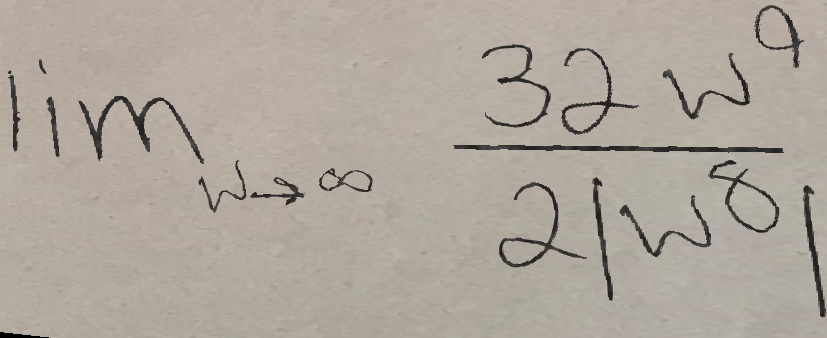 lim_{w→∞} \frac{32w^9}{2|w^8|}